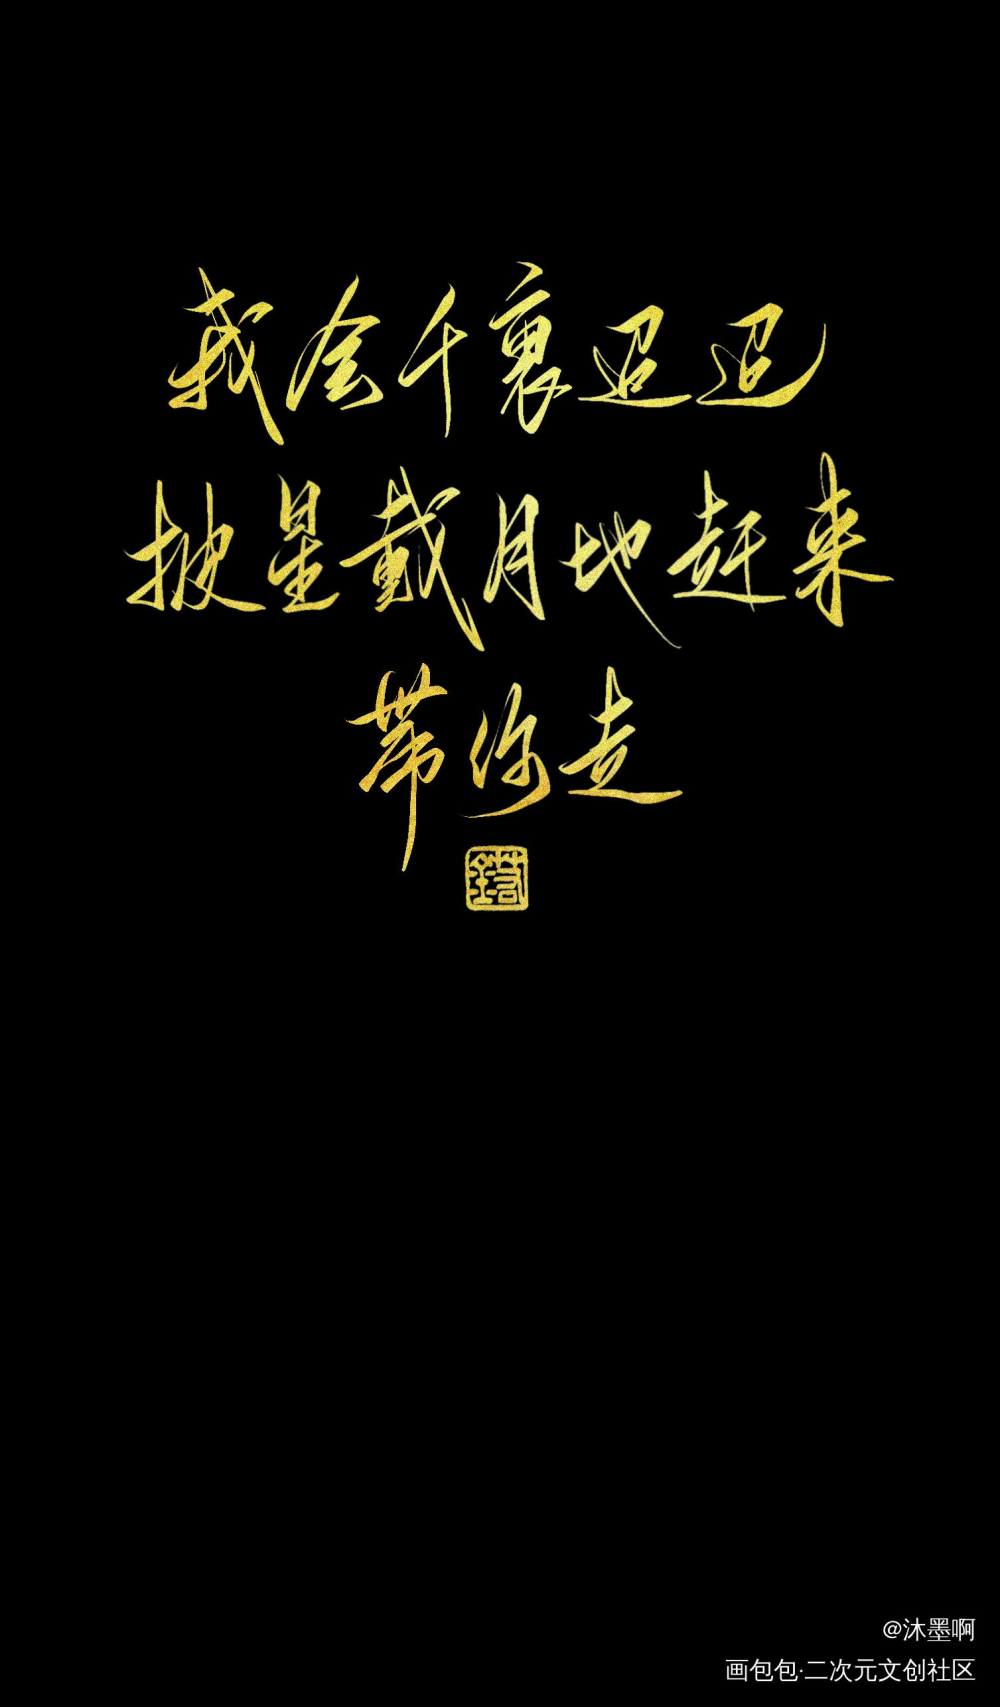 我会千裏迢迢
披星戴月地赶来
带你走
@沐墨啊
画包包·二次元文创社区